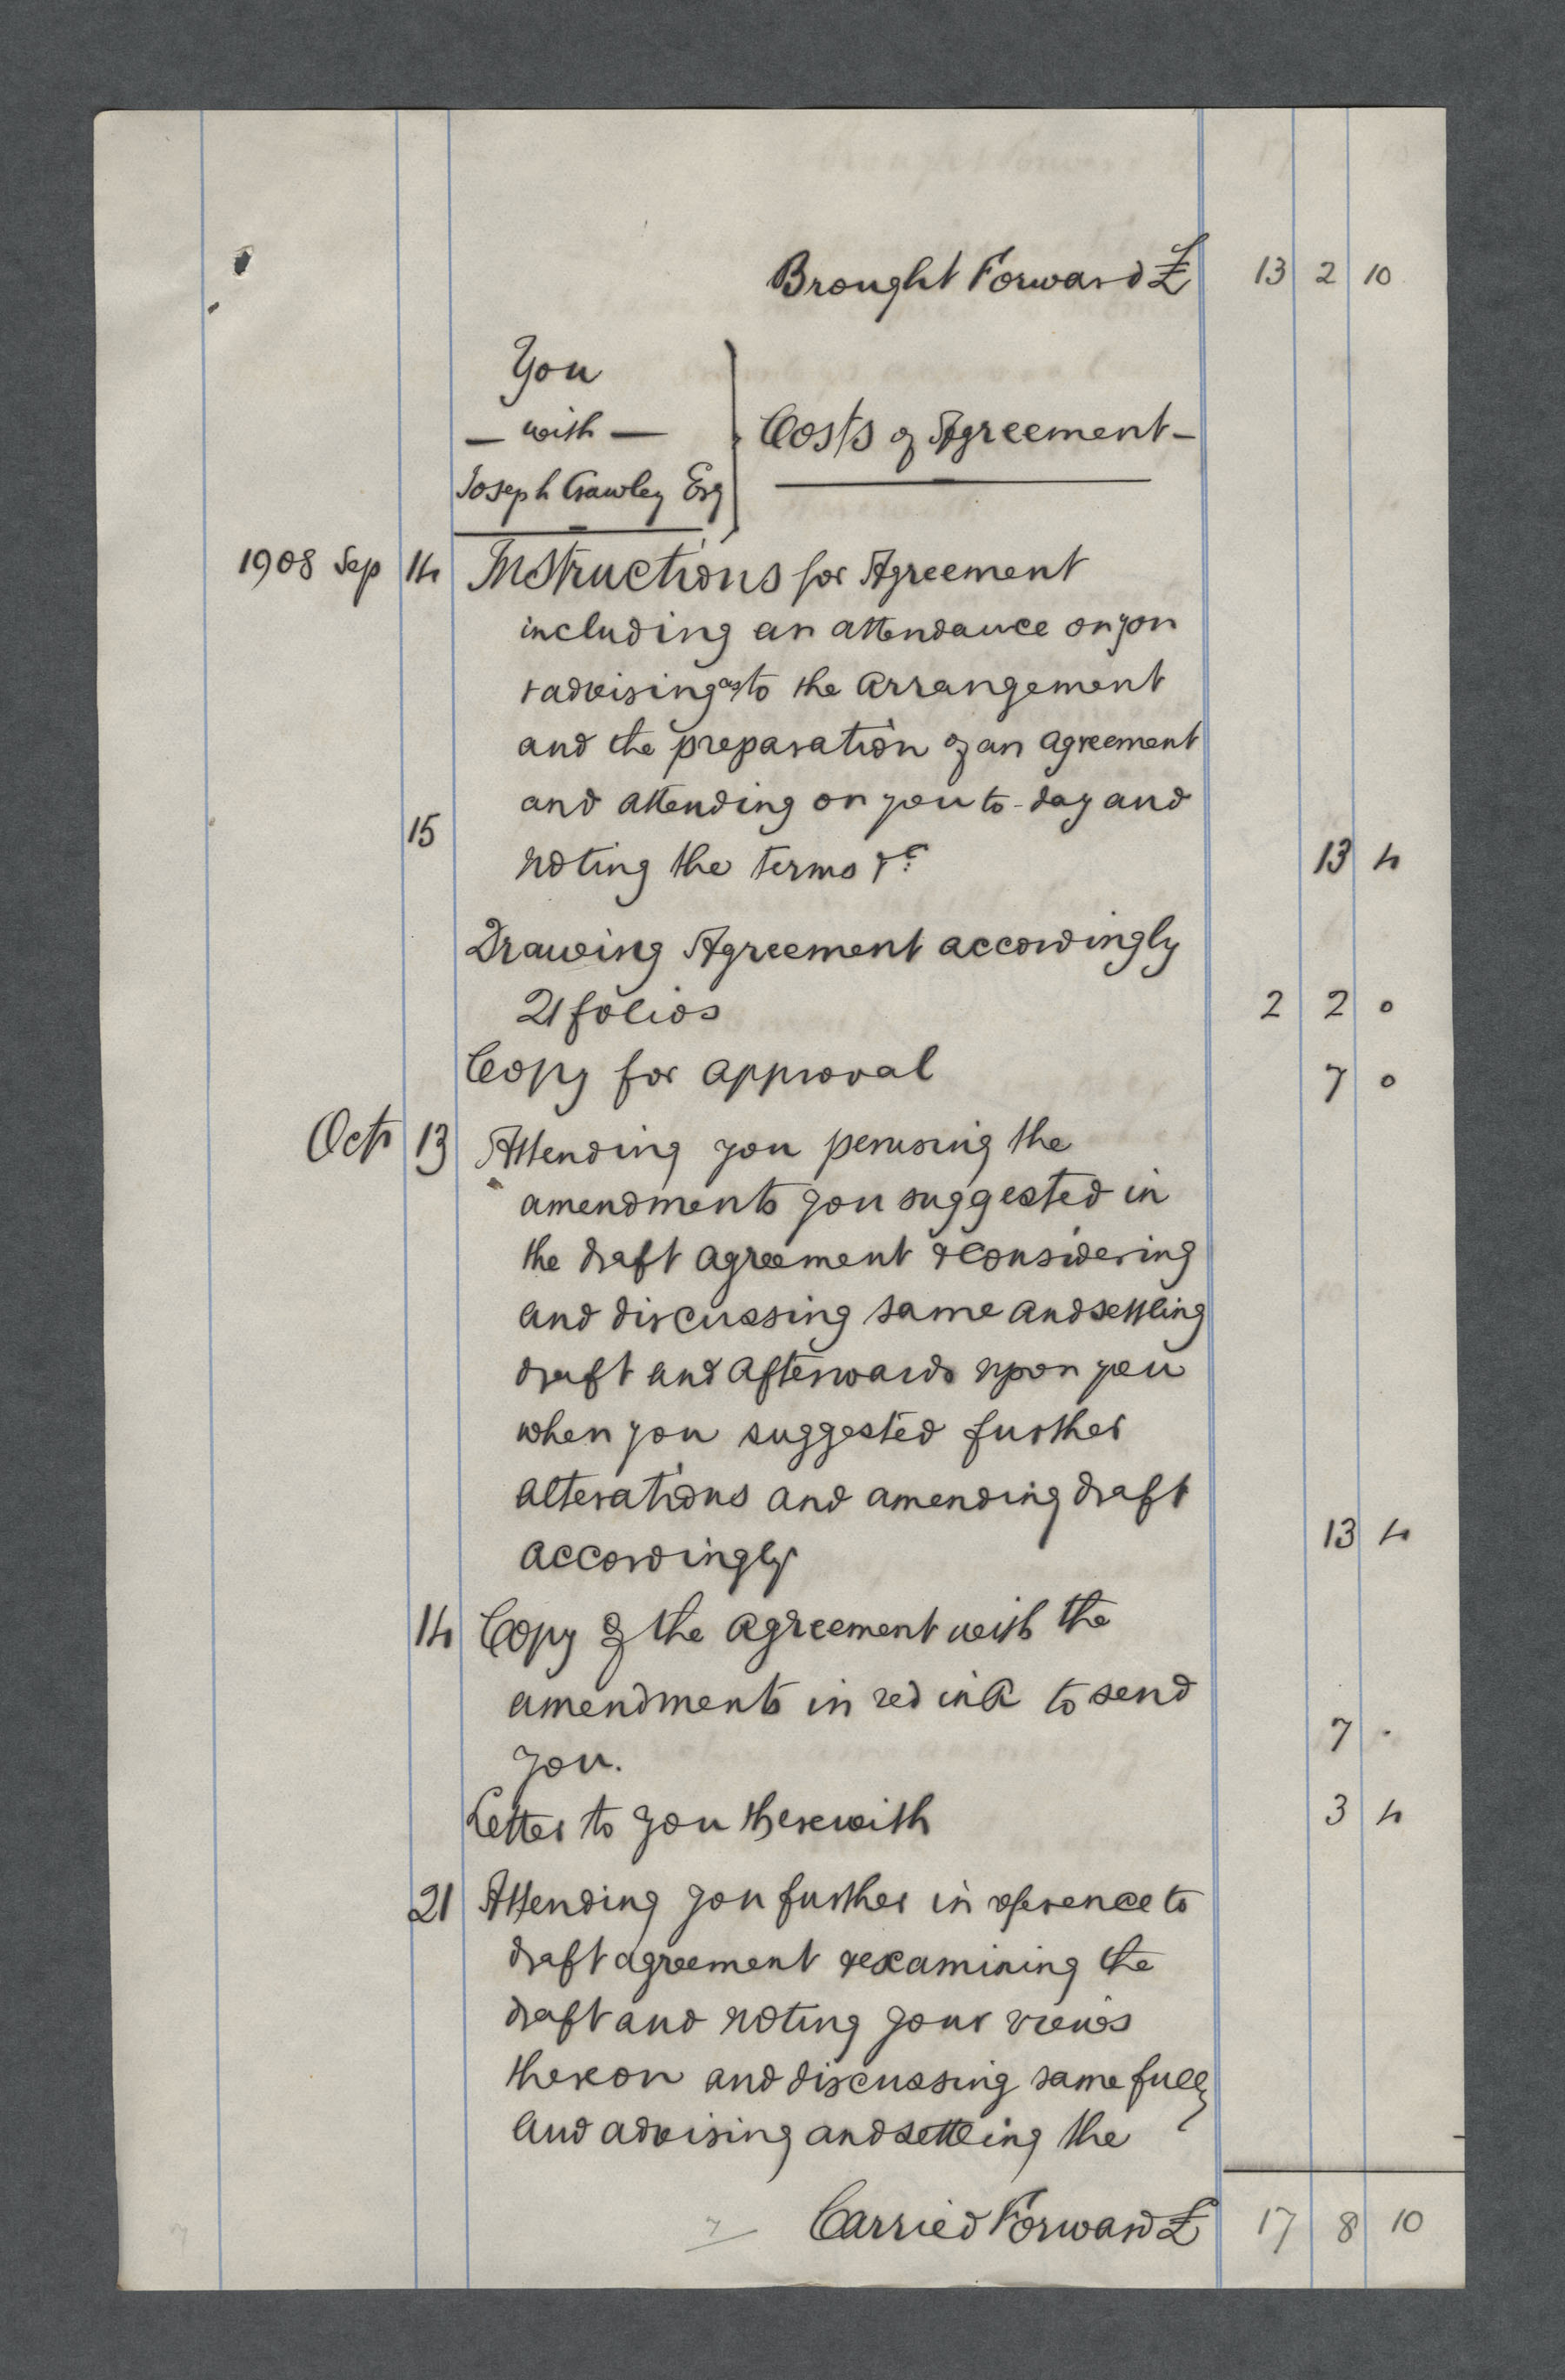 Brought Forward £ 13 2 10
You
— with —
Joseph Crawley Esq
Costs of Agreement —
1908 Sep 14 Instructions for Agreement
including an attendance on you
& advising as to the arrangement
and the preparation of an agreement
and attending on you to-day and
15 noting the terms &c 13 4
Drawing Agreement accordingly
21 folios 2 2 0
Copy for approval 7 0
Octr 13 Attending you perusing the
amendments you suggested in
the draft agreement & considering
and discussing same and settling
draft and afterwards upon you
when you suggested further
alterations and amending draft
accordingly 13 4
14 Copy of the agreement with the
amendments in red ink to send
you. 7 .
Letter to you therewith 3 4
21 Attending you further in reference to
draft agreement & examining the
draft and noting your views
thereon and discussing same fully
and advising and settling the
7 Carried Forward £ 17 8 10